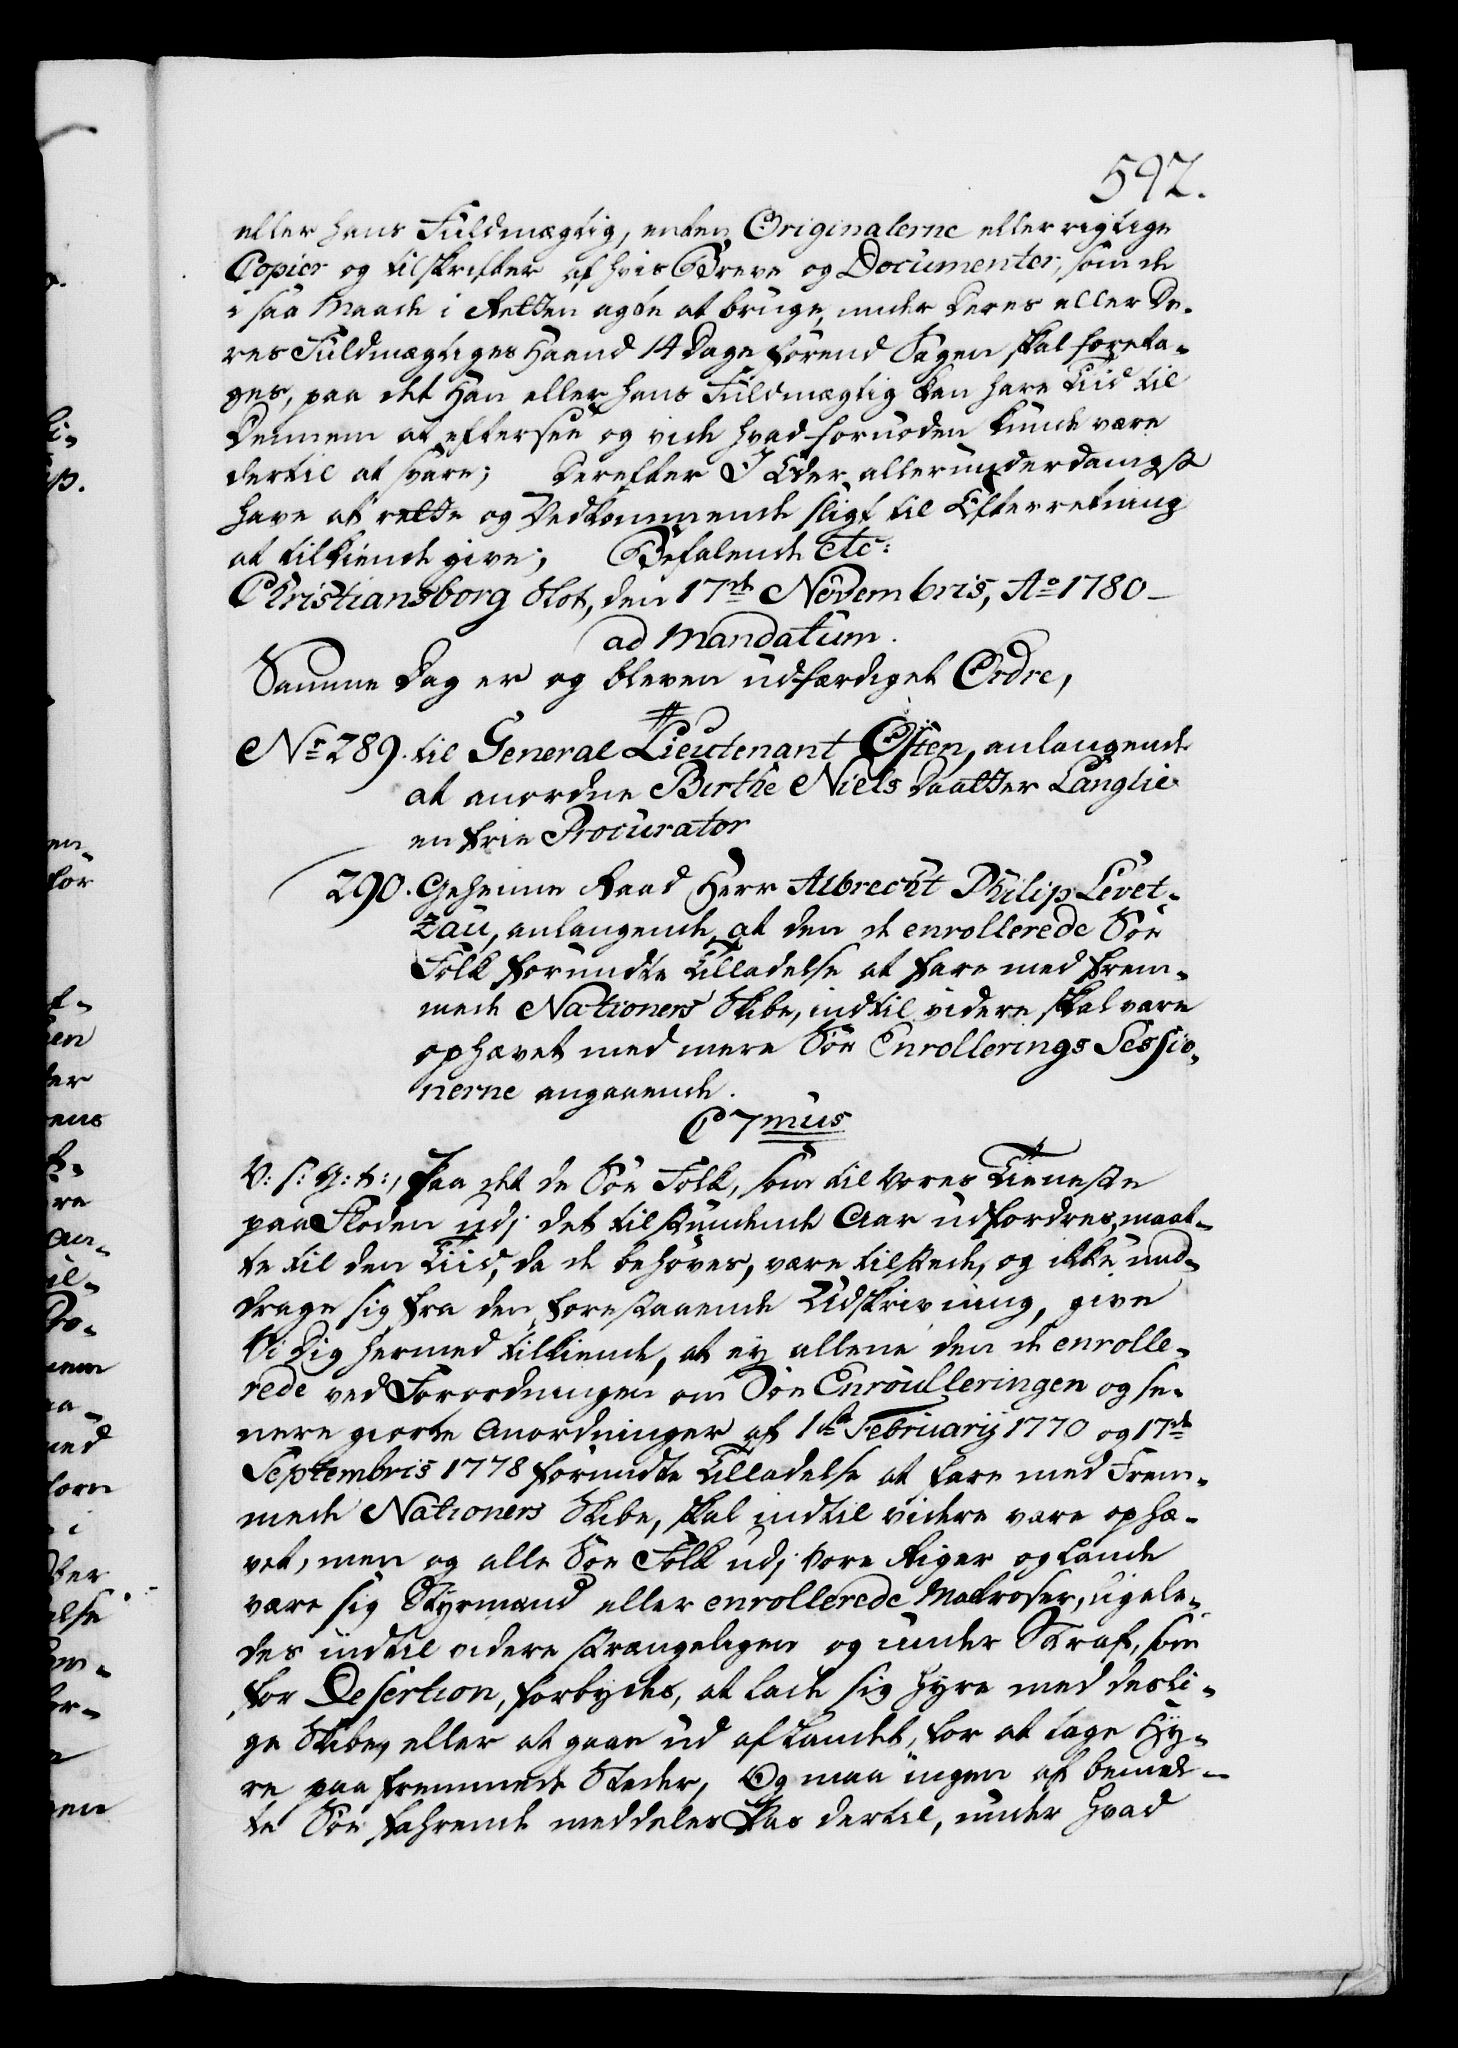 592.
eller hans Fuldmægtig, enten Originalerne eller rigtige
Copier og tilskrifter af hvis Breve og Documenter, som de
i saa Maade i Retten agte at bruge, under deres eller De-
res Fuldmægtiges Haand 14 Dage forend Sagen skal foreta-
ges, paa det Han eller hans Fuldmægtig kan have Tiid til
Dennem at eftersee og vide hvad fornøden kunde være
dertil at svare; Derefter I Eder allerunderdanigst
have at rette og Vedkommende sligt til Efterretning
at tilkiende give; Befalende etc:
Christiansborg Slot, den 17de Novembris, Ao 1780 –
ad Mandatum.
Samme Dag er og bleven udfærdiget Ordre,
No 289. til General Lieutenant Osten, anlangende
at anordne Birthe Niels Daatter Langlie
en frie Procurator
290. Geheime Raad Herr Albrecht Philip Levet-
zau, anlangende, at den de enrollerede Søe
Folk forundte Tilladelse at fare med frem-
mede Nationers Skibe, indtil videre skal være
ophævet med mere Søe Enrollerings Sessio-
nerne angaaende.
C 7mus
V: s: G: t:, Paa det de Søe Folk, som til Vores Tieneste
paa Floden udj det tilstundende Aar udfordres, maat-
te til den Tiid, da de behøves, være tilstede, og ikke und-
drage sig fra den forestaaende Udskrivning, give
Vi Dig hermed tilkiende, at ey allene den de enrolle-
rede ved Forordningen om Søe Enroulleringen og se-
nere giorte Anordninger af 1ste Februarij 1770 og 17de
Septembris 1778 forundte Tilladelse at fare med Frem-
mede Nationers Skibe, skal indtil videre være ophæ-
vet, men og alle Søe Folk udj Vore Riger og Lande
være sig Styrmænd eller enrollerede Matroser, ligele-
des indtil videre strængeligen og under Straf, som
for Desertion, forbydes, at lade sig hyre med desli-
ge Skibe, eller at gaae ud af Landet, for at tage Hy-
re paa fremmede Steder, Og maa ingen af bemeld-
te Søe fahrende meddeles Pas dertil, under hvad